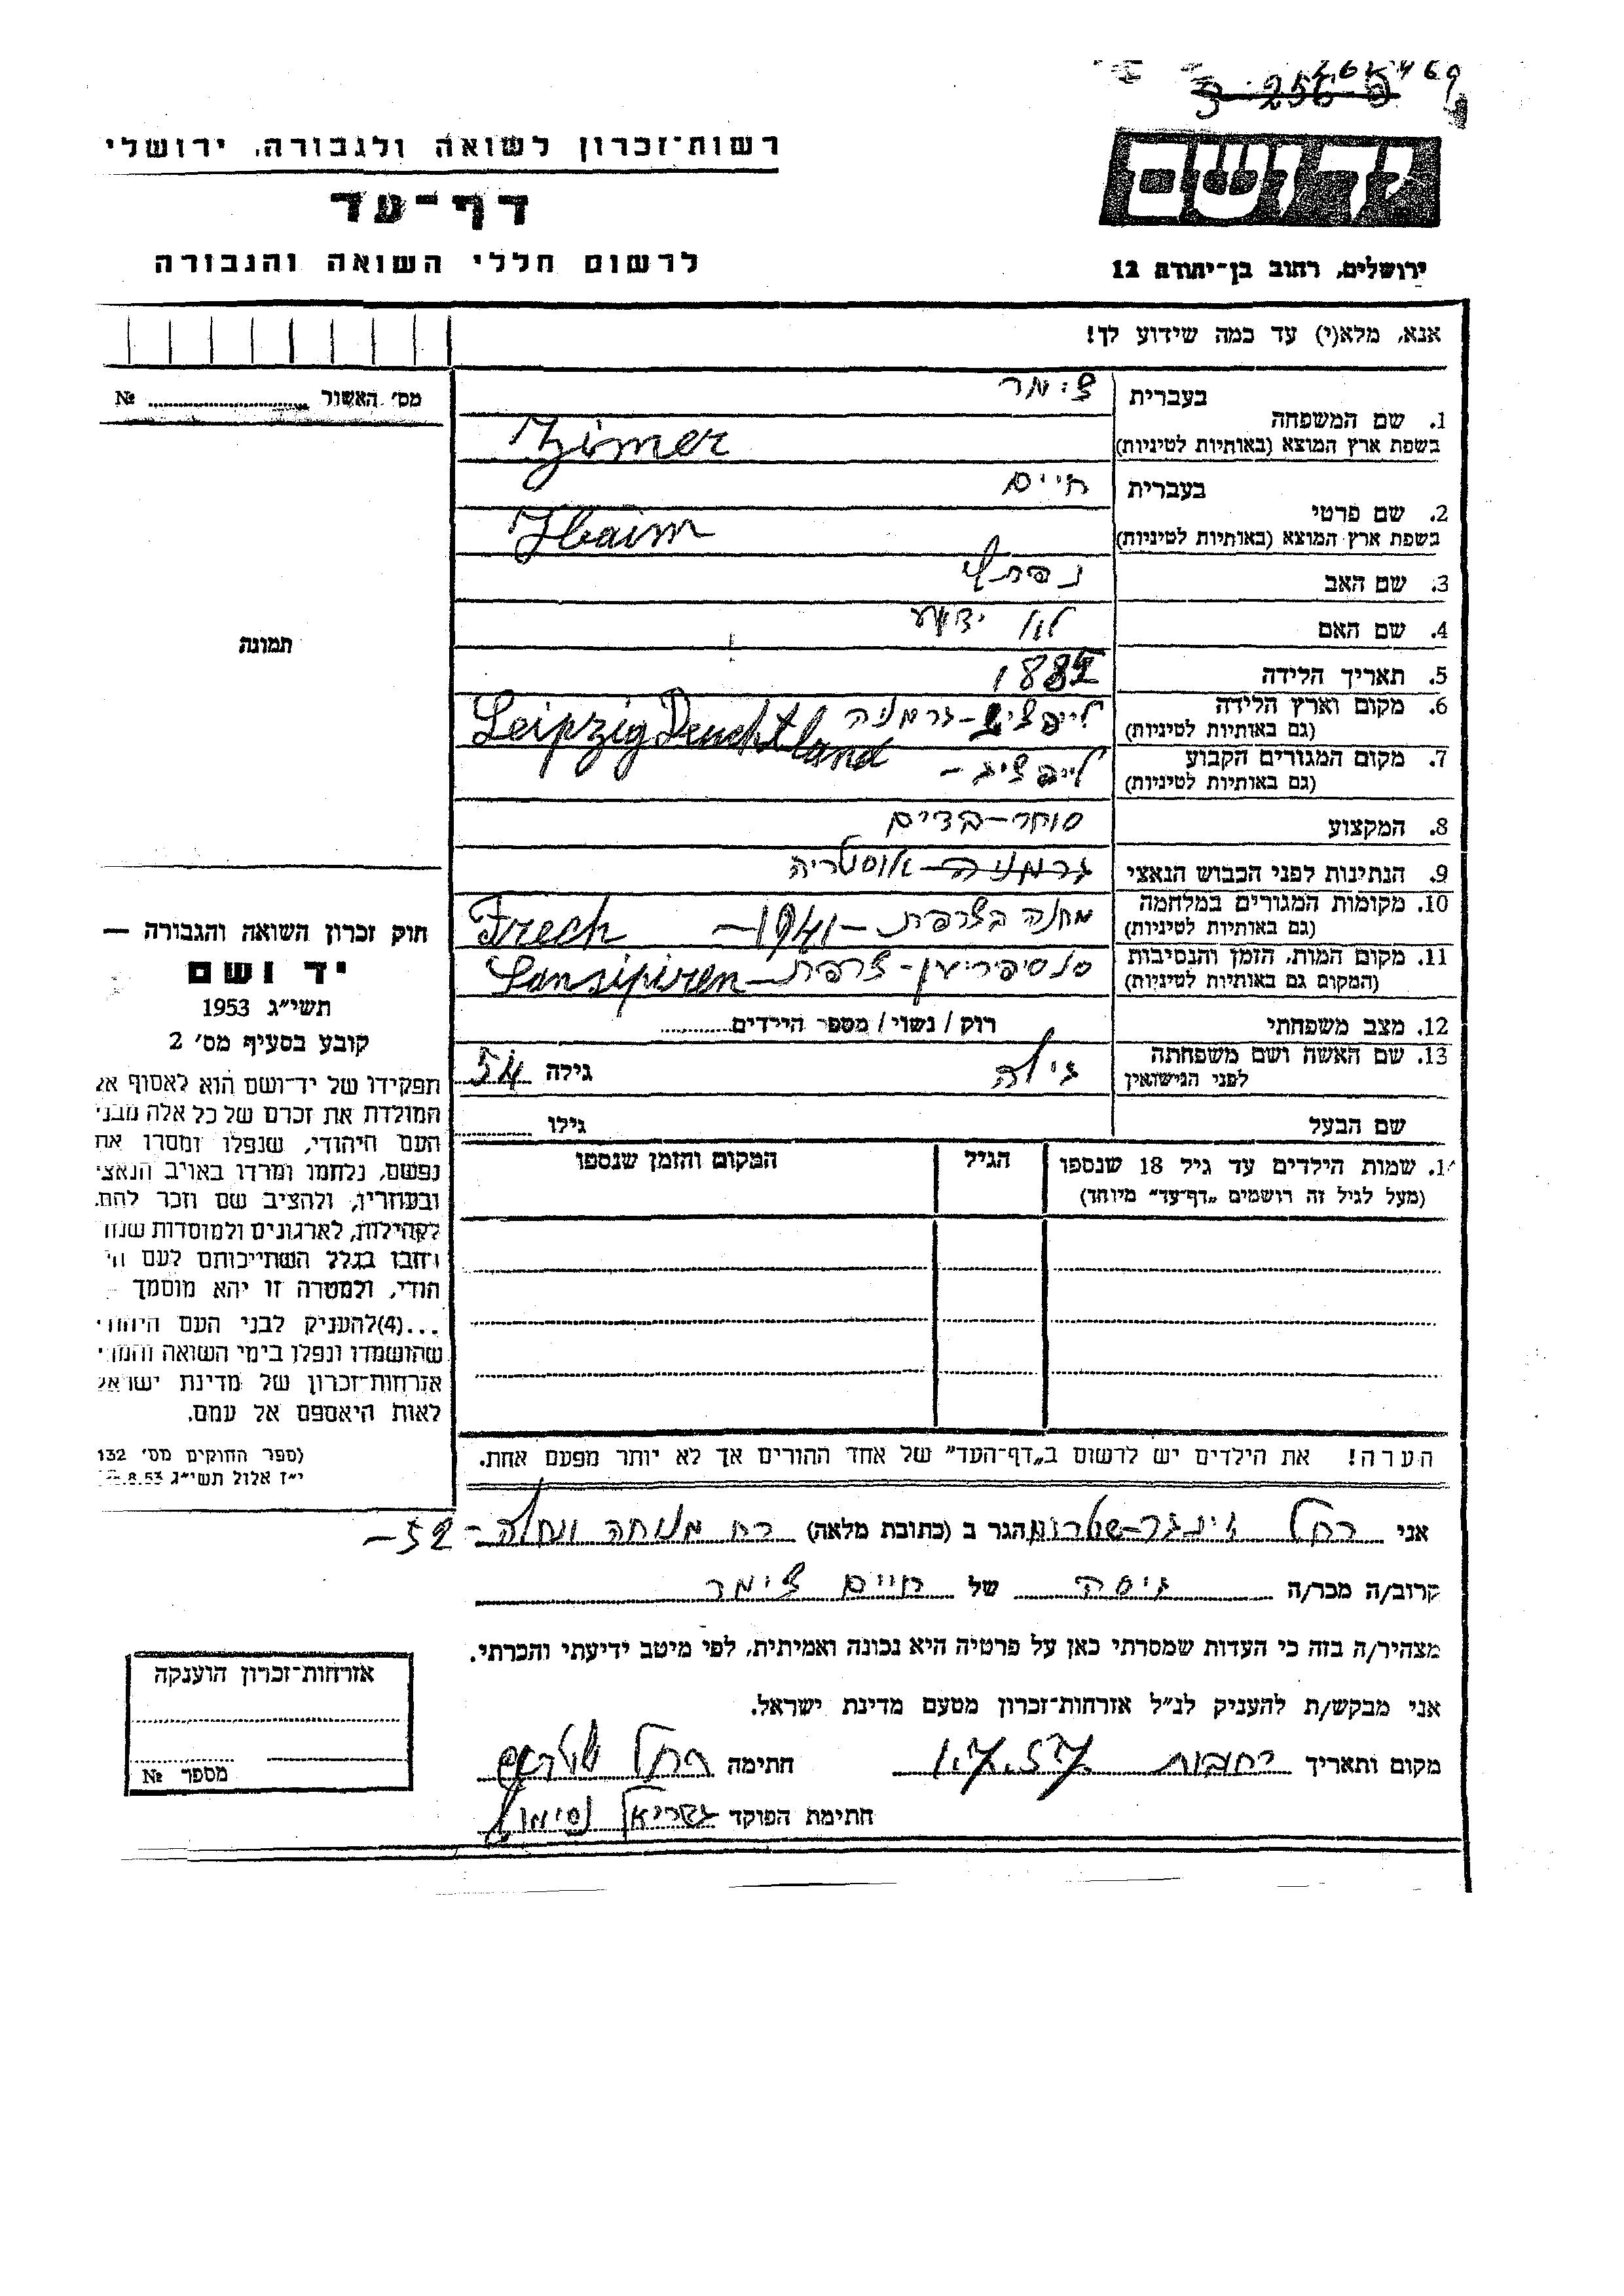 265469
3-256-D
רשות־זכרון לשואה ולגבורה, ירושלי
דף־עד
לרשום חללי השואה והגבורה
יד ושם
ירושלים, רחוב בן־יהודה 12
אנא, מלא(י) עד כמה שידוע לך!
מס׳ האשור № 
1. שם המשפחה
בעברית צימר
בשפת ארץ המוצא (באותיות לטיניות) Zimer
2. שם פרטי
בעברית חיים
בשפת ארץ המוצא (באותיות לטיניות) Haim
3. שם האב נפתלי
4. שם האם לא ידוע
5. תאריך הלידה 1882
6. מקום וארץ הלידה (גם באותיות לטיניות) לייפציג - גרמניה Leipzig Deuchtland
7. מקום המגורים הקבוע (גם באותיות לטיניות) לייפציג -
8. המקצוע סוחר - בדים
9. הנתינות לפני הכבוש הנאצי גרמניה - אוסטריה
10. מקומות המגורים במלחמה (גם באותיות לטיניות) מחנה בצרפת - 1941 - Frech
11. מקום המות, הזמן והנסיבות (המקום גם באותיות לטיניות) סנסיפירין - צרפת - Sansipiren
12. מצב משפחתי רוק / נשוי / מספר הילדים
13. שם האשה ושם משפחתה לפני הנישואין גילה גילה 54
שם הבעל גילו
1. שמות הילדים עד גיל 18 שנספו (מעל לגיל זה רושמים „דף־עד" מיוחד)
הגיל
המקום והזמן שנספו
הערה! את הילדים יש לרשום ב„דף־העד" של אחד ההורים אך לא יותר מפעם אחת.
תמונה
חוק זכרון השואה והגבורה —
יד ושם
תשי״ג 1953
קובע בסעיף מס׳ 2
תפקידו של יד־ושם הוא לאסוף אל
המולדת את זכרם של כל אלה מבני
העם היהודי, שנפלו ומסרו את
נפשם, נלחמו ומרדו באויב הנאצי
ובעוזריו, ולהציב שם וזכר להם,
לקהילות, לארגונים ולמוסדות שנח
רבו בגלל השתייכותם לעם הי
הודי, ולמטרה זו יהא מוסמך –
...(4)להעניק לבני העם היהודי
שהושמדו ונפלו בימי השואה והמרי
אזרחות־זכרון של מדינת ישראל
לאות היאספם אל עמם.
(ספר החוקים מס׳ 132
י״ז אלול תשי״ג 8.53.
אני רחל זינגר-שטרום הגר ב (כתובת מלאה) רח מנוחה ונחלה - 52 -
קרוב/ה מכר/ה גיסה של חיים צימר
מצהיר/ה בזה כי העדות שמסרתי כאן על פרטיה היא נכונה ואמיתית, לפי מיטב ידיעתי והכרתי.
אני מבקש/ת להעניק לנ״ל אזרחות־זכרון מטעם מדינת ישראל.
מקום ותאריך רחובות 1.7.57 חתימה רחל שטרום
חתימת הפוקד גבריאל נסימוב
אזרחות־זכרון הוענקה
מספר №